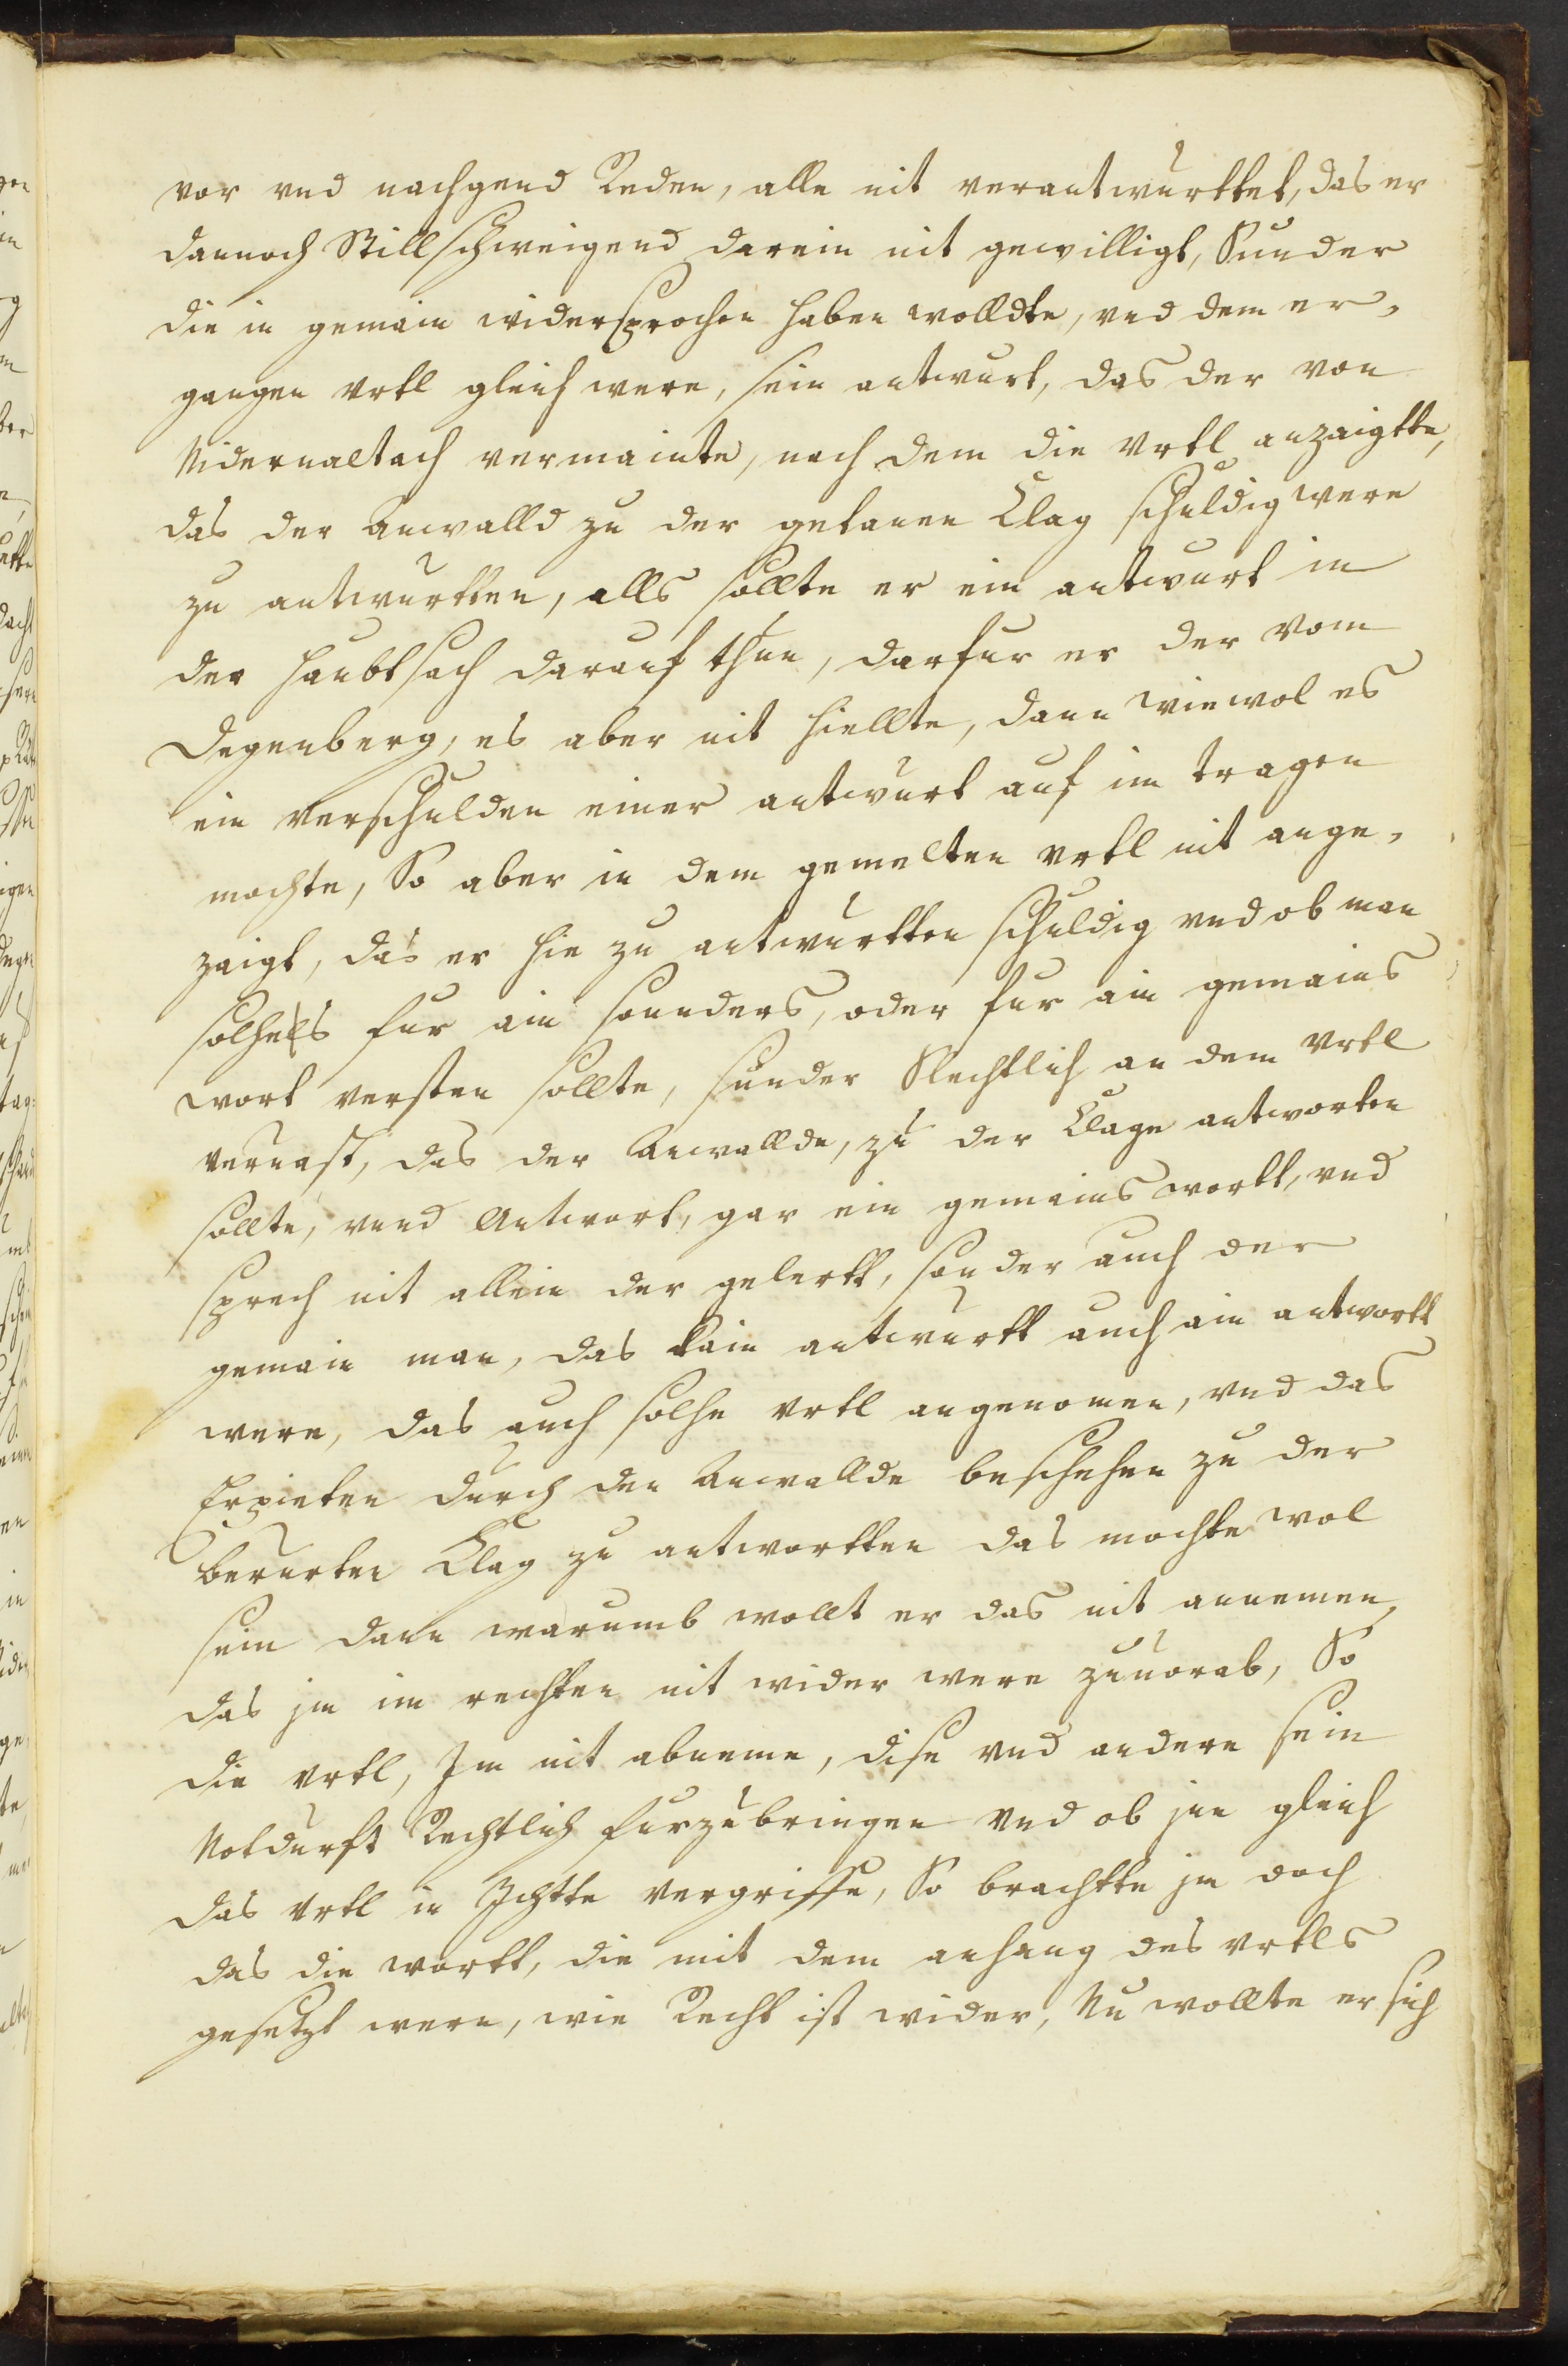 vor vnd nachgend Reden, alle nit verantwurttet, das er
dannoch Stillschweigend darein nit gewilligt, Sunder
die in gemain widersprochen haben wolldte, vnd dem er,
gangen vrtl gleich were, sein antwurt, das der von
Nidernaltach vermainte, nach dem die vrtl anzaigtte,
das der Anwalld zu der getanen Clag schuldig were
zu antwurtten, alls sollte er ein antwurt in
der haubtsach darauf thun, darfur er der vom
Degenberg, es aber nit hiellte, dann wiewol es
ein verschulden einer antwurt auf im tragen
mochte, So aber in dem gemelten vrtl nit ange,
zaigt, das er hie zu antwurtten schuldig vnd ob man
solhes fur ain sounders, oder fur ain gemains
wort versten sollte, sunder Slechtlich an dem vrtl
veruast, das der Anwallde, zu der Clage antworten
sollte, vnnd Antwort, gar ein gemains wortt, vnd
sprech nit allein der gelertt, sonder auch der
gemain man, das kain antwurtt auch ain antwortt
were, das auch solhe vrtl angenomen, vnd das
Erpieten durch den Anwallde beschehen zu der
berurten Clag zu antwortten das mochte wol
sein dann warumb wollt er das nit annemen,
das jm im rechten nit wider were zuuorab, So
die vrtl, Im nit abneme, dise vnd andere sein
Notdurft Rechtlich furzubringen vnd ob jne gleich
das vrtl in Ichtte vergriffe, So brachtte jm doch
das die wortt, die mit dem anhang des vrtls
gesetzt were, wie Recht ist wider, Nu wollte er sich